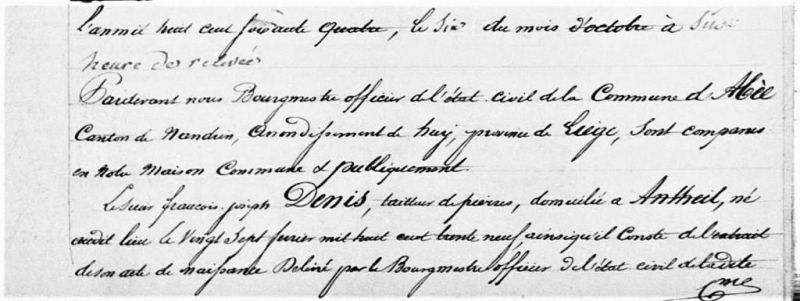 L'an mil huit cent soixante quatre, le six du mois d'octobre à six
heure de relevée
Pardevant nous Bourgmestre officier de l'état civil de la Commune d'Abée
Canton de Nandrin, arrondissement de huy, province de Liège, sont comparus
en notre Maison Commune et publiquement
Le Sieur françois joseph Denis, tailleur de pierres, domicilié a Antheit, né
audit lieu le Vingt Sept fevrier mil huit cent trente neuf, ainsi qu'il Conste de l'extrait
de son acte de naissance Delivré par le Bourgmestre officier de l'état civil de la dite
Cme